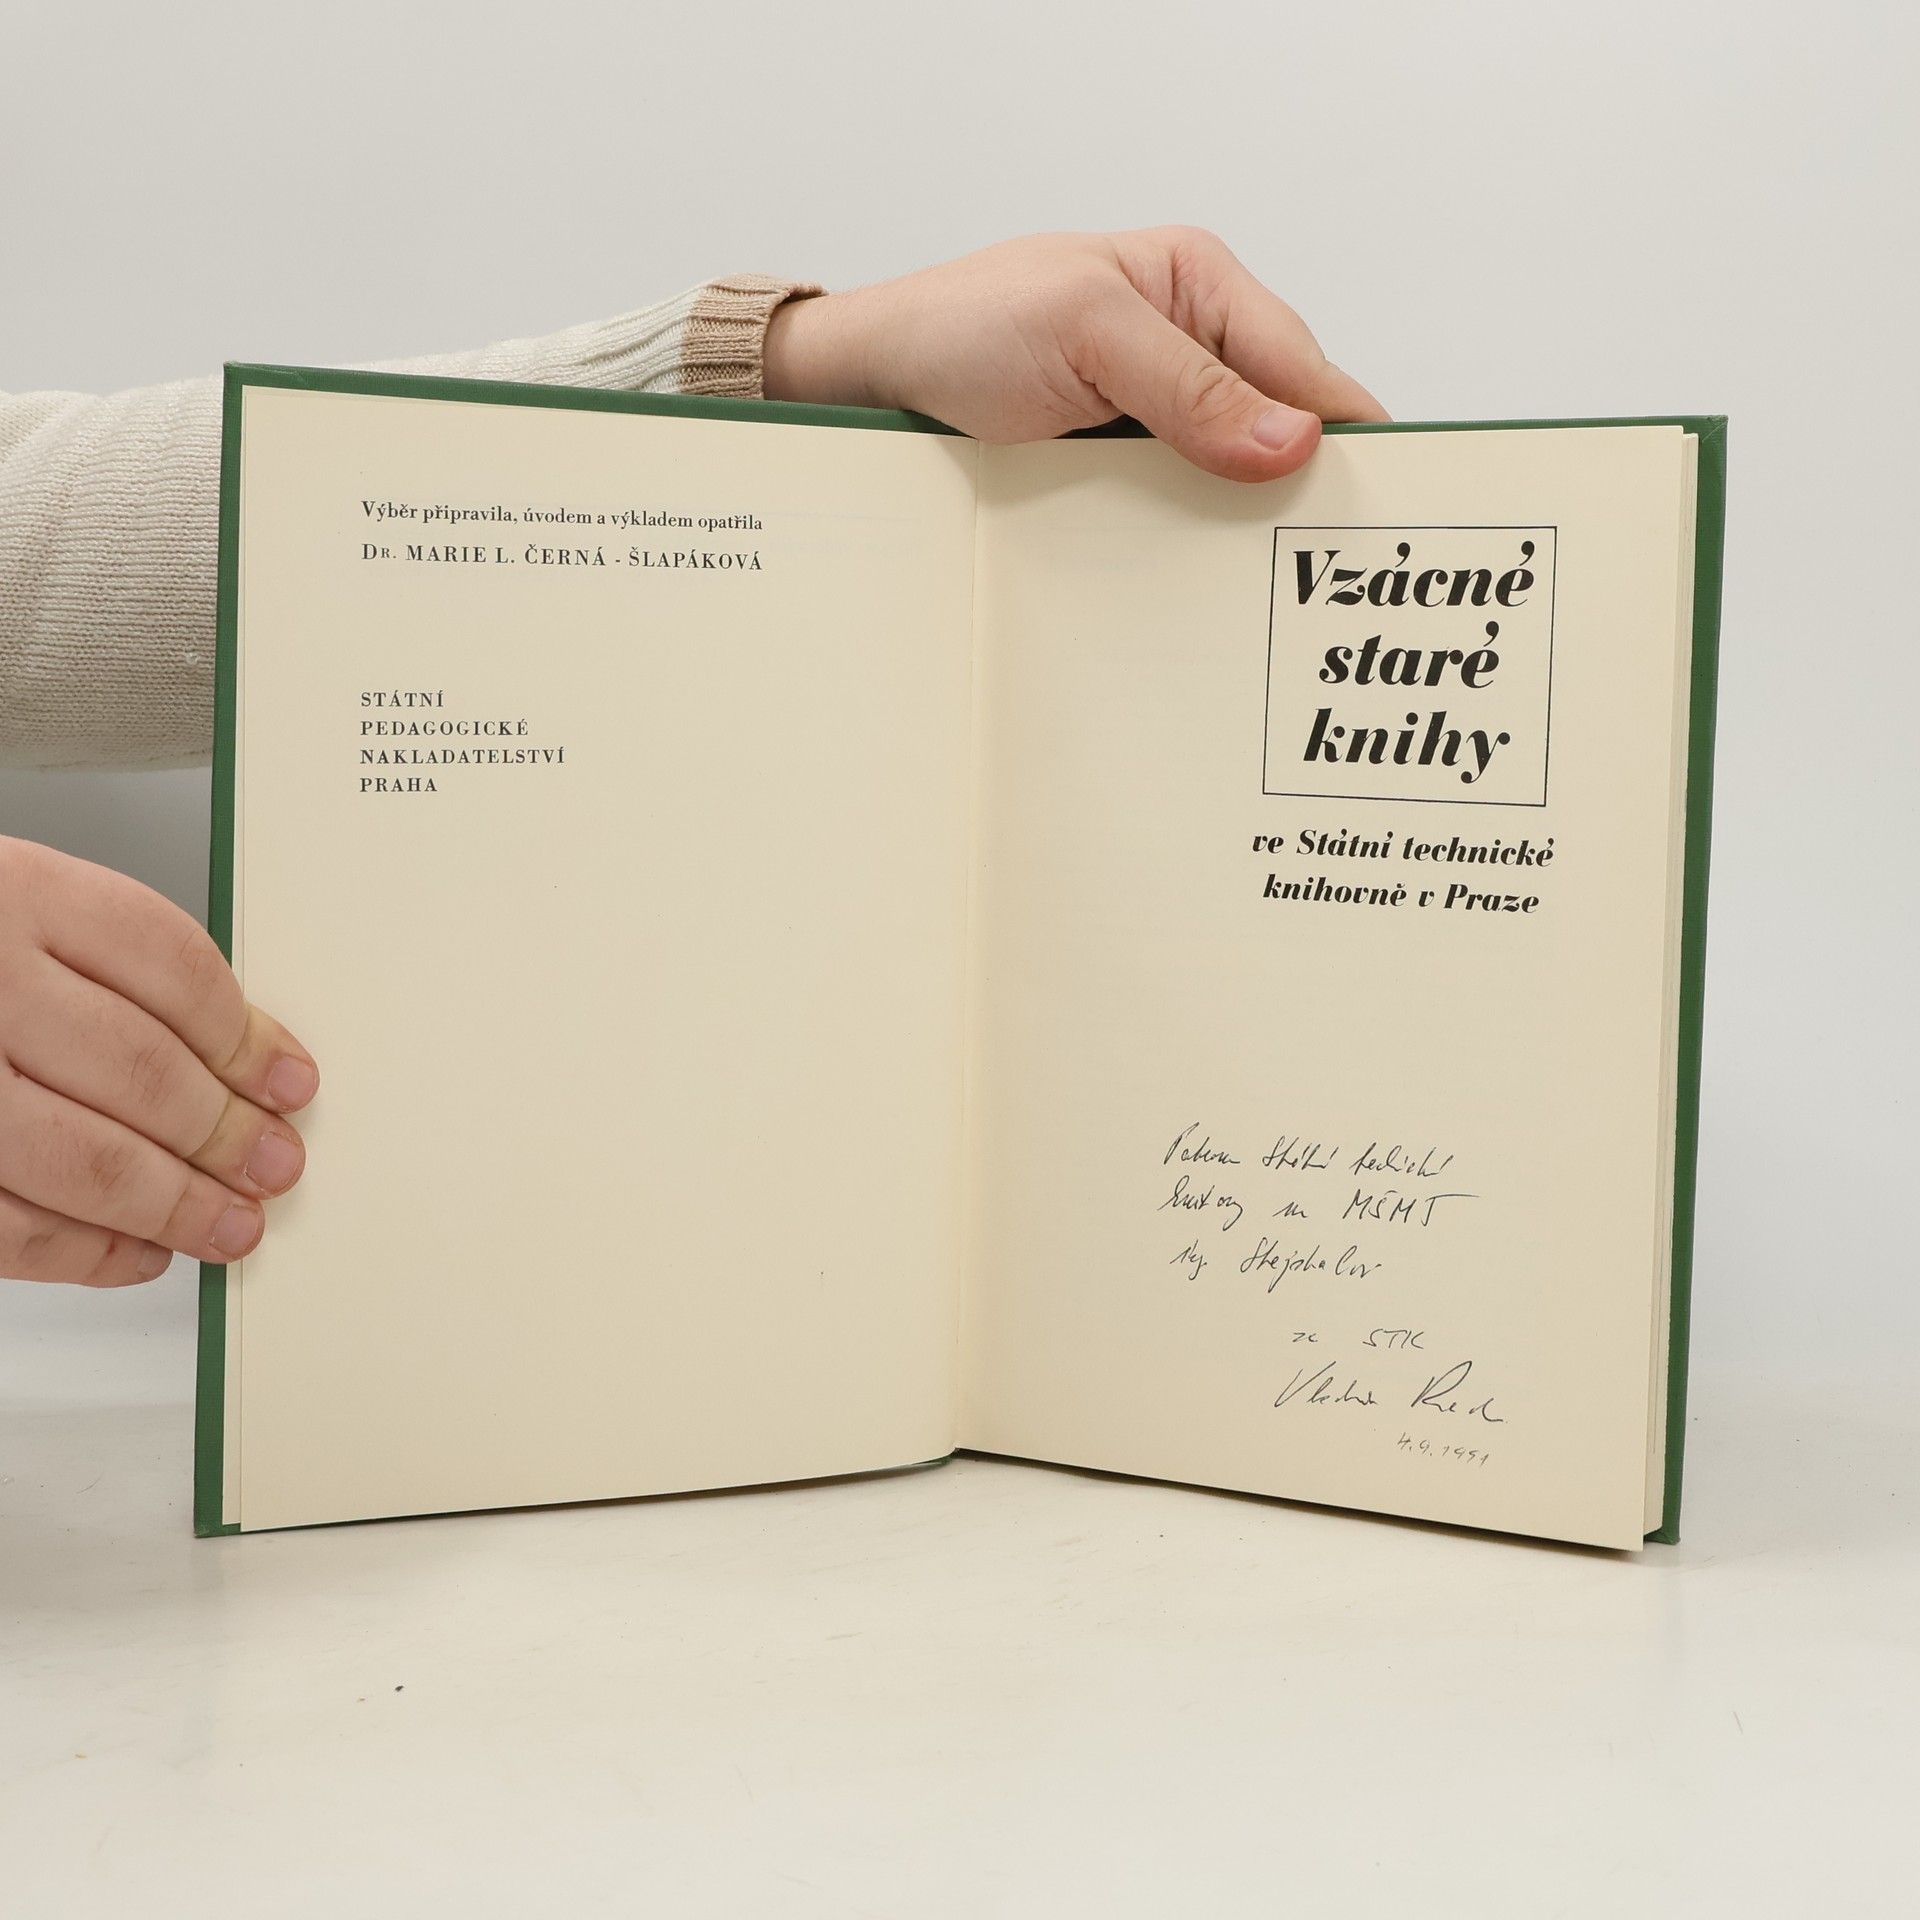 Výběr připravila, úvodem a výkladem opatřila
Dr. MARIE L. ČERNÁ - ŠLAPÁKOVÁ
STÁTNÍ
PEDAGOGICKÉ
NAKLADATELSTVÍ
PRAHA
Vzácné
staré
knihy
ve Státní technické
knihovně v Praze
Státní technické
knihovny na MŠMT
Ing.
za STK
Vladimír
4.9.1991